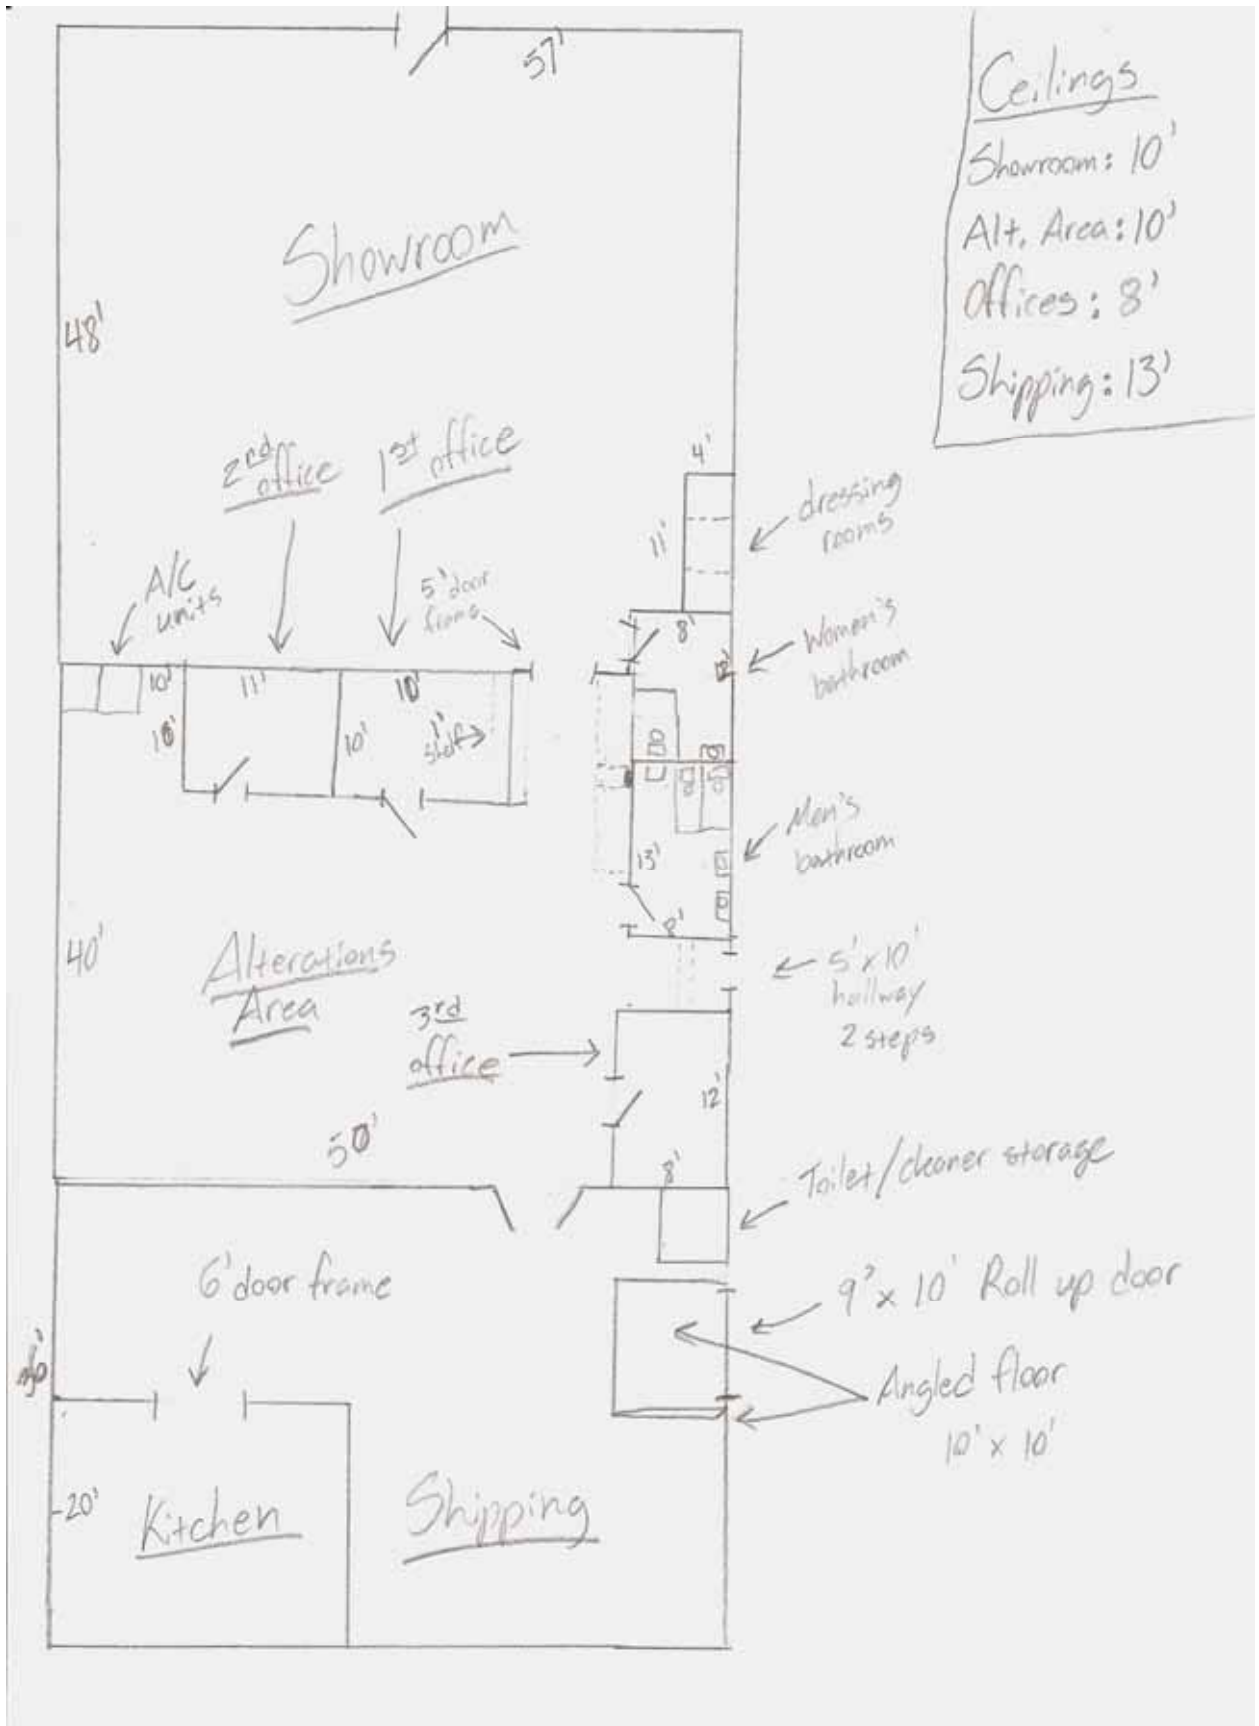 57'
Ceilings
Showroom: 10'
Alt. Area: 10'
Offices: 8'
Shipping: 13'
Showroom
48'
2nd office
1st office
4'
11'
dressing
rooms
A/C
units
5' door
frame
8'
Women's
bathroom
10'
11'
10'
10'
10'
1'
shelf
13'
8'
Men's
bathroom
40'
Alterations
Area
5' x 10'
hallway
2 steps
3rd
office
12'
50'
8'
Toilet/cleaner storage
6' door frame
9' x 10' Roll up door
Angled floor
10' x 10'
20'
Kitchen
Shipping